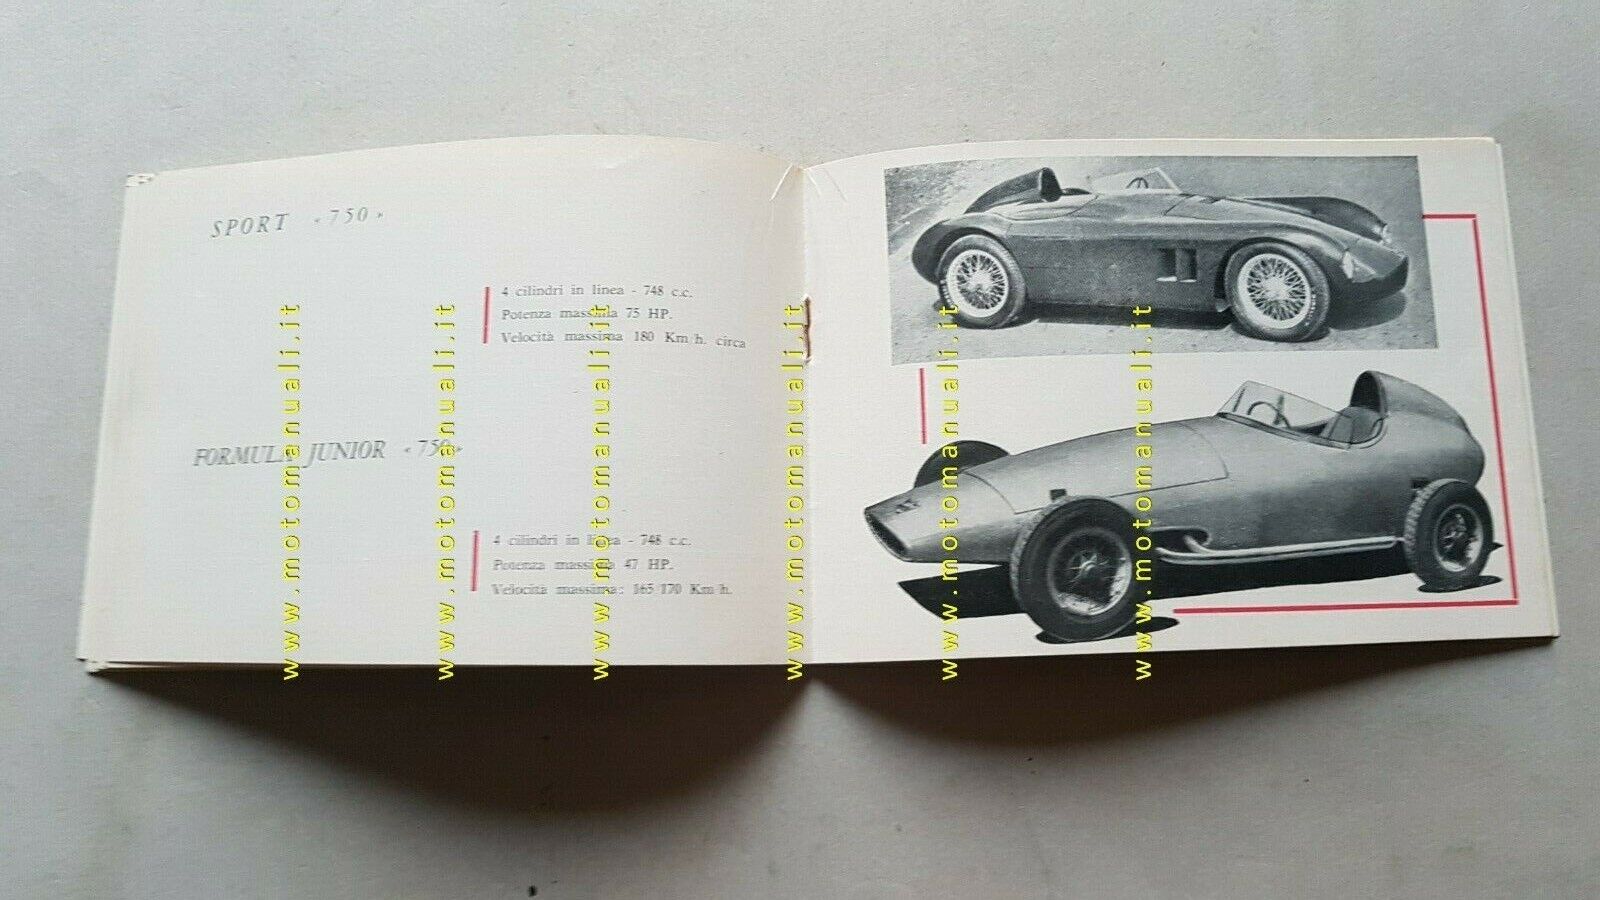 SPORT « 750 »
4 cilindri in linea - 748 c.c.
Potenza massima 75 HP.
Velocità massima 180 Km/h. circa
FORMULA JUNIOR « 750 »
4 cilindri in linea - 748 c.c.
Potenza massima 47 HP.
Velocità massima: 165/170 Km/h.
www.motomanuali.it
www.motomanuali.it
www.motomanuali.it
www.motomanuali.it
www.motomanuali.it
www.motomanuali.it